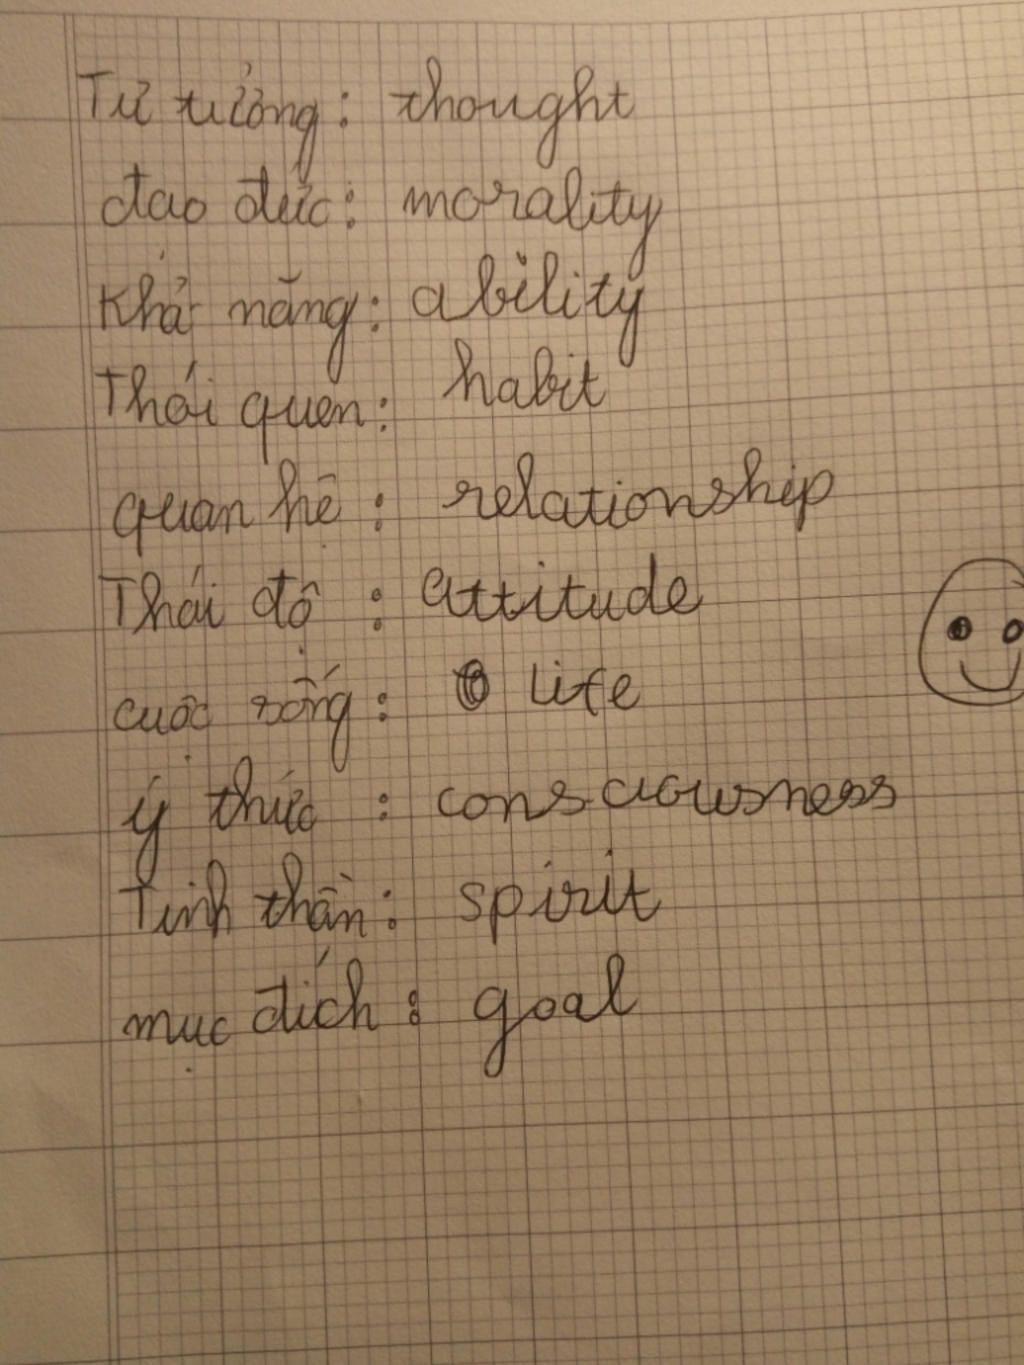 Tư tưởng: thought
đạo đức: morality
Khả năng: ability
Thói quen: habit
quan hệ: relationship
Thái độ: attitude
cuộc sống: life
ý thức: consciousness
Tinh thần: spirit
mục đích: goal